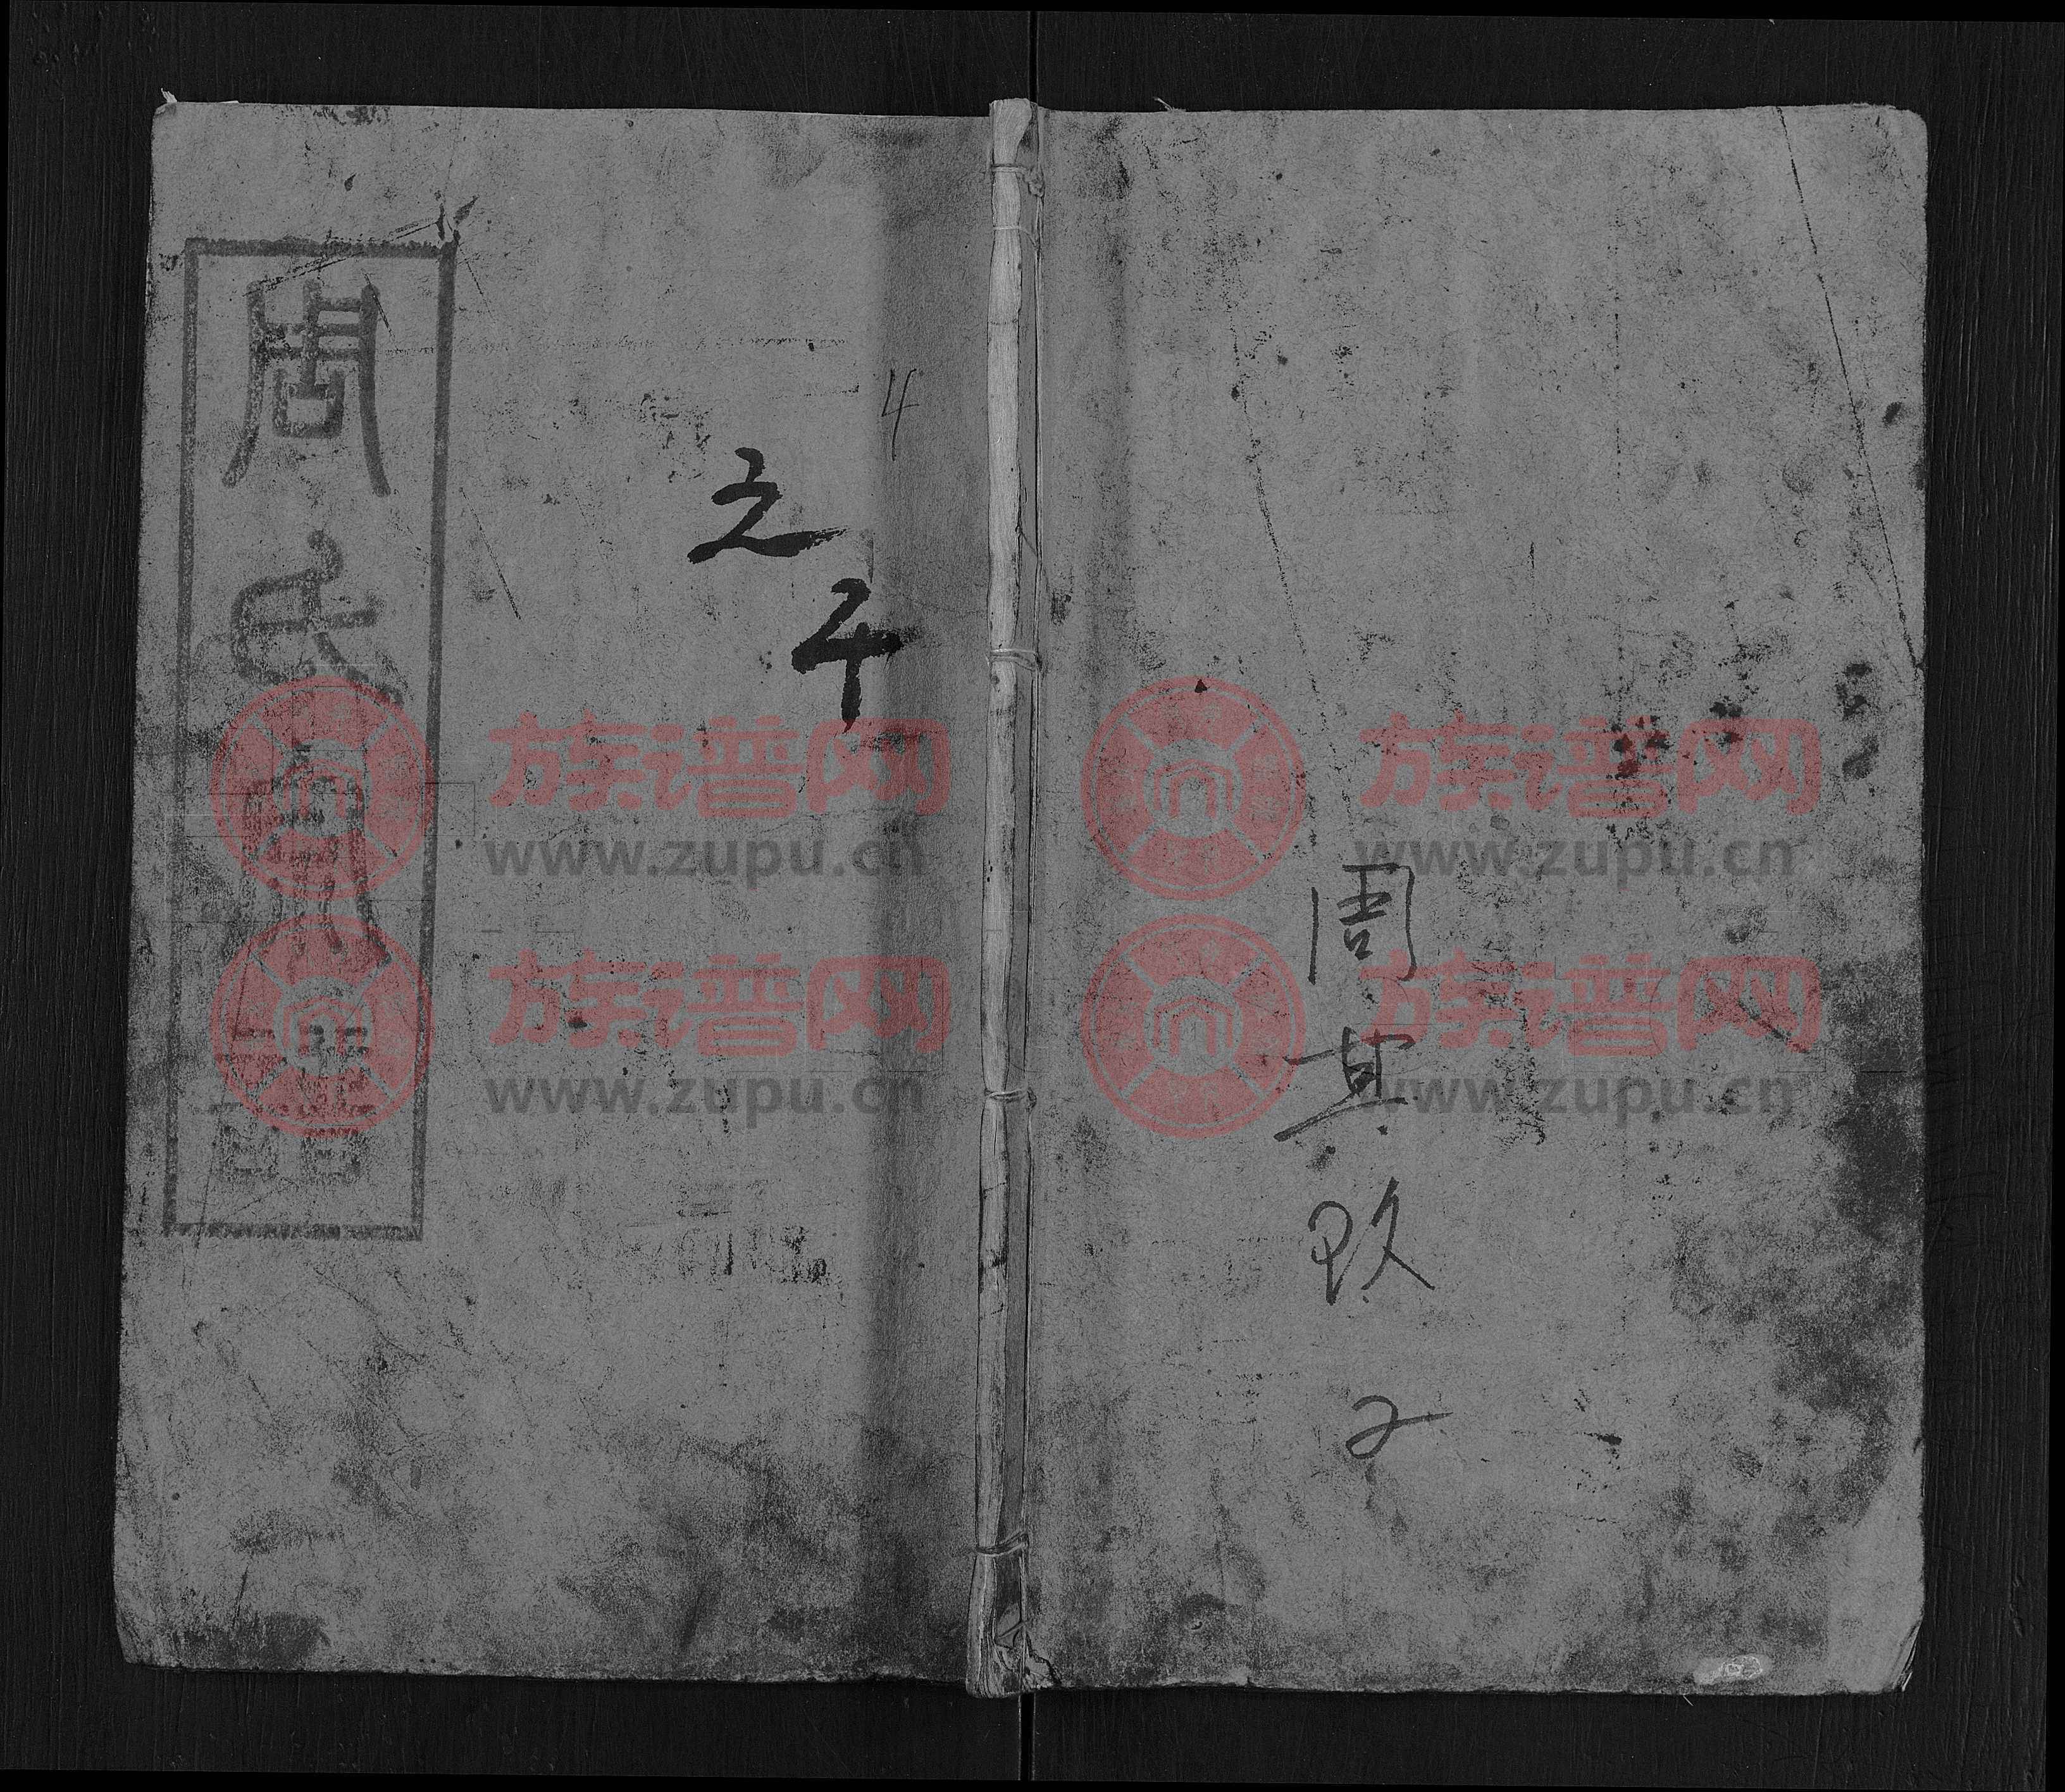 周氏宗譜
4
之
4
周其
2
族谱网
www.zupu.cn
族谱网
www.zupu.cn
族谱网
www.zupu.cn
族谱网
www.zupu.cn